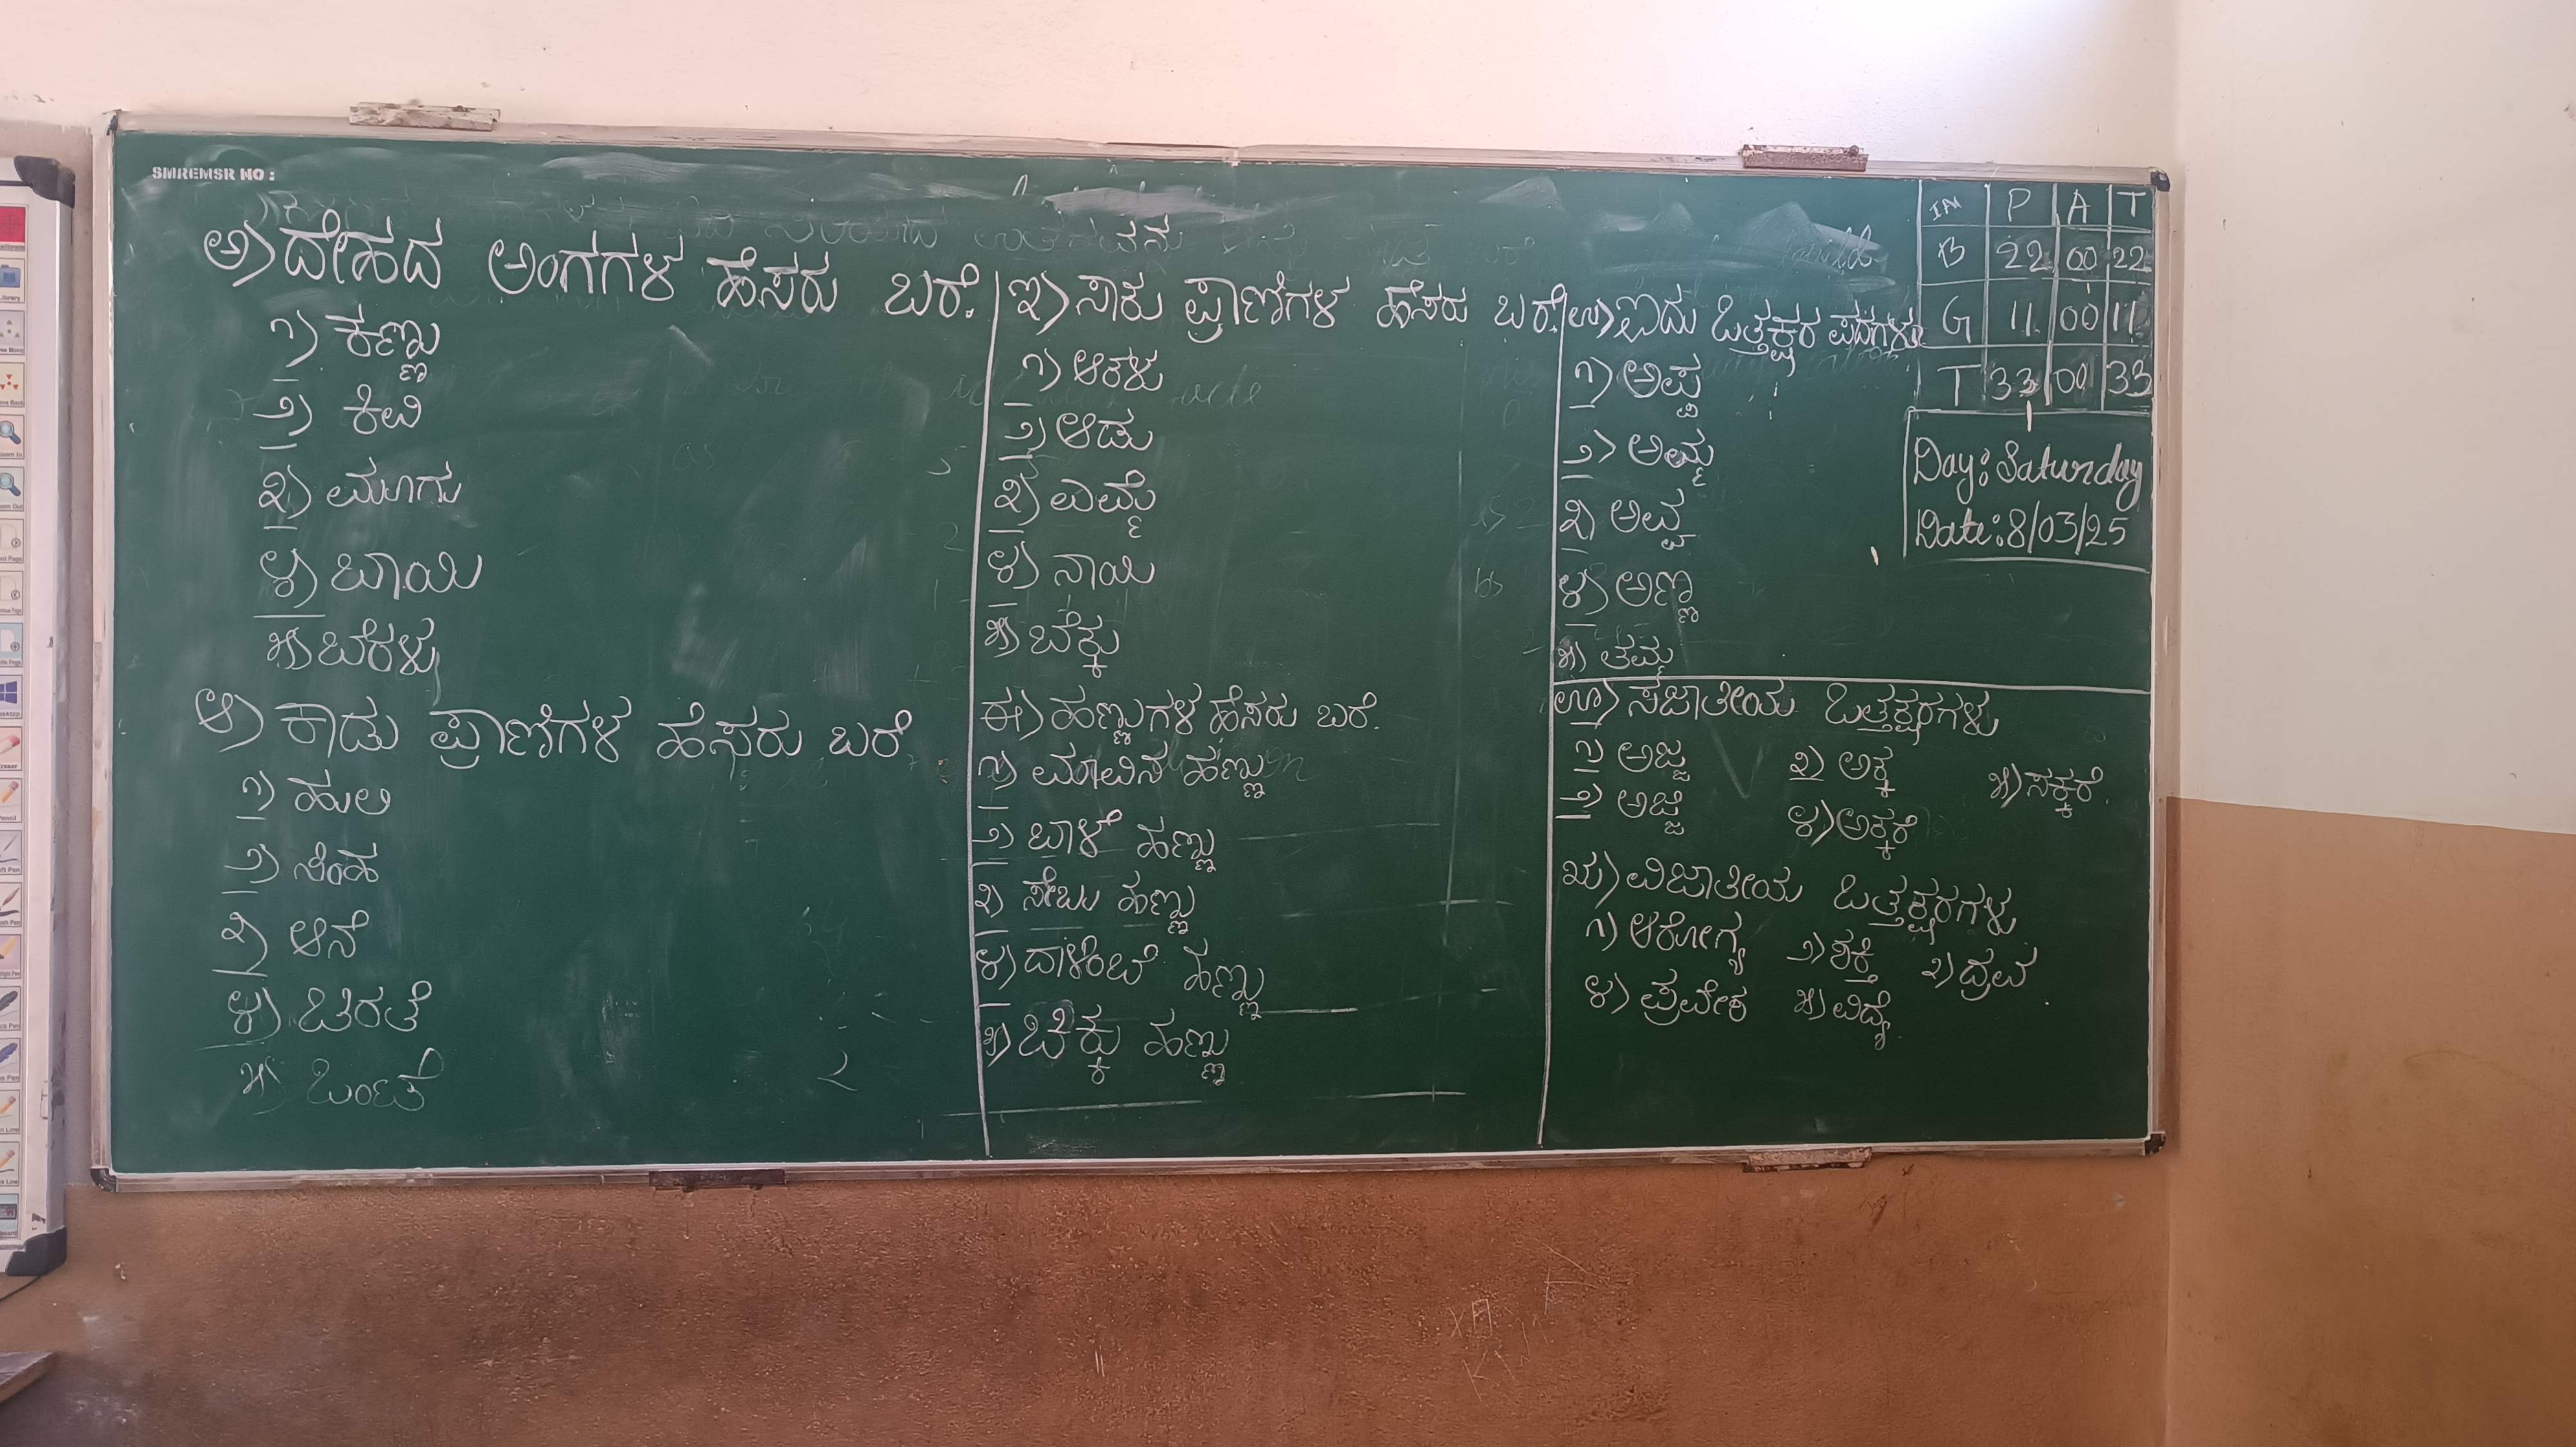 SMREMSR NO :
ಅ) ದೇಹದ ಅಂಗಗಳ ಹೆಸರು ಬರೆ.
೧) ಕಣ್ಣು
೨) ಕಿವಿ
೩) ಮೂಗು
೪) ಬಾಯಿ
೫) ಬೆರಳು
ಆ) ಕಾಡು ಪ್ರಾಣಿಗಳ ಹೆಸರು ಬರೆ
೧) ಹುಲಿ
೨) ಸಿಂಹ
೩) ಆನೆ
೪) ಚಿರತೆ
೫) ಒಂಟೆ
ಇ) ಸಾಕು ಪ್ರಾಣಿಗಳ ಹೆಸರು ಬರೆ
೧) ಆಕಳು
೨) ಆಡು
೩) ಎಮ್ಮೆ
೪) ನಾಯಿ
೫) ಬೆಕ್ಕು
ಈ) ಹಣ್ಣುಗಳ ಹೆಸರು ಬರೆ.
೧) ಮಾವಿನ ಹಣ್ಣು
೨) ಬಾಳೆ ಹಣ್ಣು
೩) ಸೇಬು ಹಣ್ಣು
೪) ದಾಳಿಂಬೆ ಹಣ್ಣು
೫) ಚಿಕ್ಕು ಹಣ್ಣು
ಉ) ಐದು ಒತ್ತಕ್ಷರ ಪದಗಳು
೧) ಅಪ್ಪ
೨) ಅಮ್ಮ
೩) ಅವ್ವ
೪) ಅಣ್ಣ
೫) ತಮ್ಮ
ಊ) ಸಜಾತೀಯ ಒತ್ತಕ್ಷರಗಳು
೧) ಅಜ್ಜ ೩) ಅಕ್ಕ ೫) ಸಕ್ಕರೆ.
೨) ಅಜ್ಜಿ ೪) ಅಕ್ಕರೆ
ಋ) ವಿಜಾತೀಯ ಒತ್ತಕ್ಷರಗಳು
೧) ಆರೋಗ್ಯ ೨) ಶಕ್ತಿ ೩) ದ್ರವ
೪) ಪ್ರವೇಶ ೫) ವಿದ್ಯೆ
P A T
B 22 00 22
G 11 00 11
T 33 00 33
Day: Saturday
Date: 8/03/25